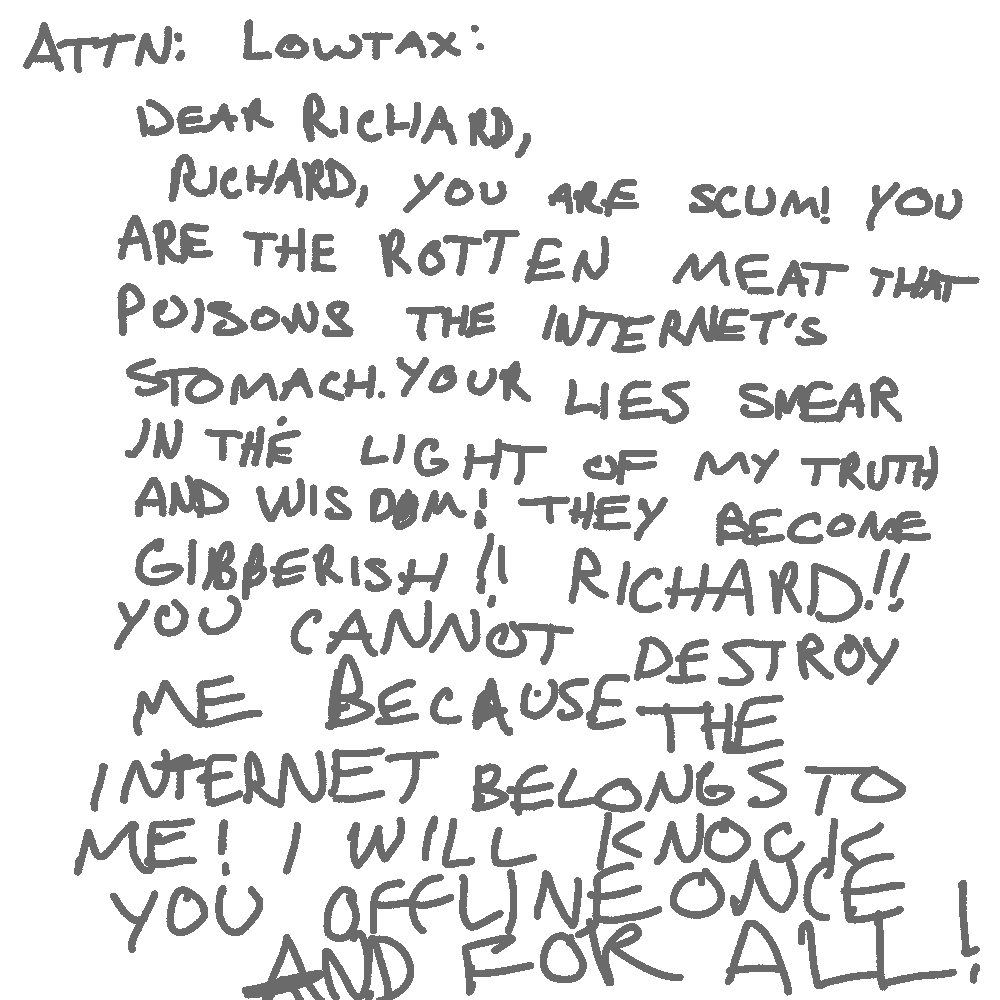 ATTN: LOWTAX:
DEAR RICHARD,
RICHARD, YOU ARE SCUM! YOU
ARE THE ROTTEN MEAT THAT
POISONS THE INTERNET'S
STOMACH. YOUR LIES SMEAR
IN THE LIGHT OF MY TRUTH
AND WISDOM! THEY BECOME
GIBBERISH!! RICHARD!!
YOU CANNOT DESTROY
ME BECAUSE THE
INTERNET BELONGS TO
ME! I WILL KNOCK
YOU OFFLINE ONCE
AND FOR ALL!